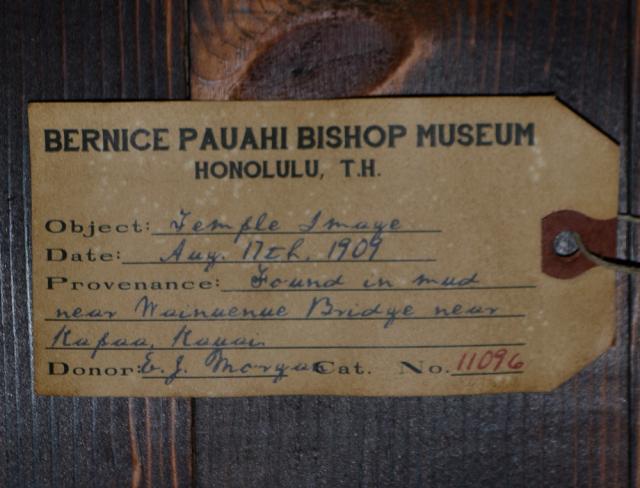 BERNICE PAUAHI BISHOP MUSEUM
HONOLULU, T.H.
Object: Temple Image
Date: Aug. 17th, 1909
Provenance: Found in mud
near Wainuenue Bridge near
Kapaa, Kauai
Donor: E. J. Morgan Cat. No. 11096